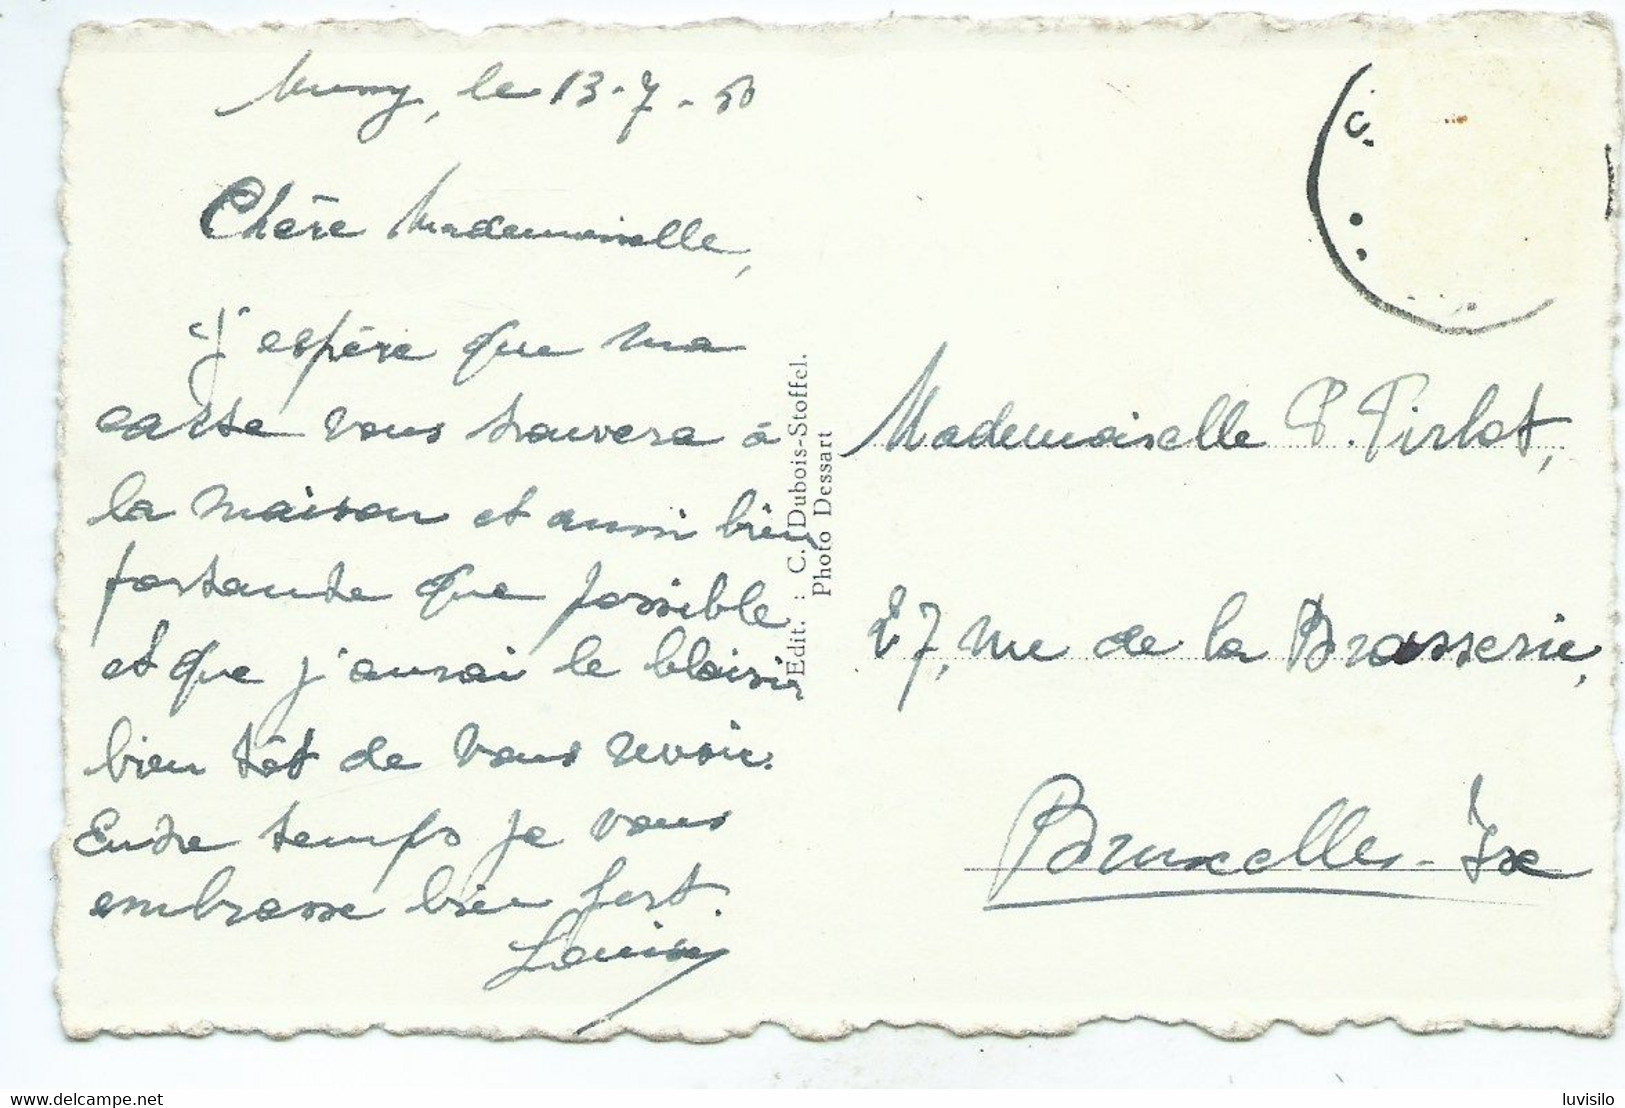 Muny, le 13-7-50
Chère Mademoiselle,
J'espère que ma
carte vous trouvera à
la maison et aussi bien
portante que possible
et que j'aurai le plaisir
bien tôt de vous revoir.
Entre temps je vous
embrasse bien fort.
Edit. : C. Dubois-Stoffel.
Photo Dessart
Mademoiselle P. Pirlot,
27, rue de la Brasserie,
Bruxelles-Ixe
www.delcampe.net
luvisilo